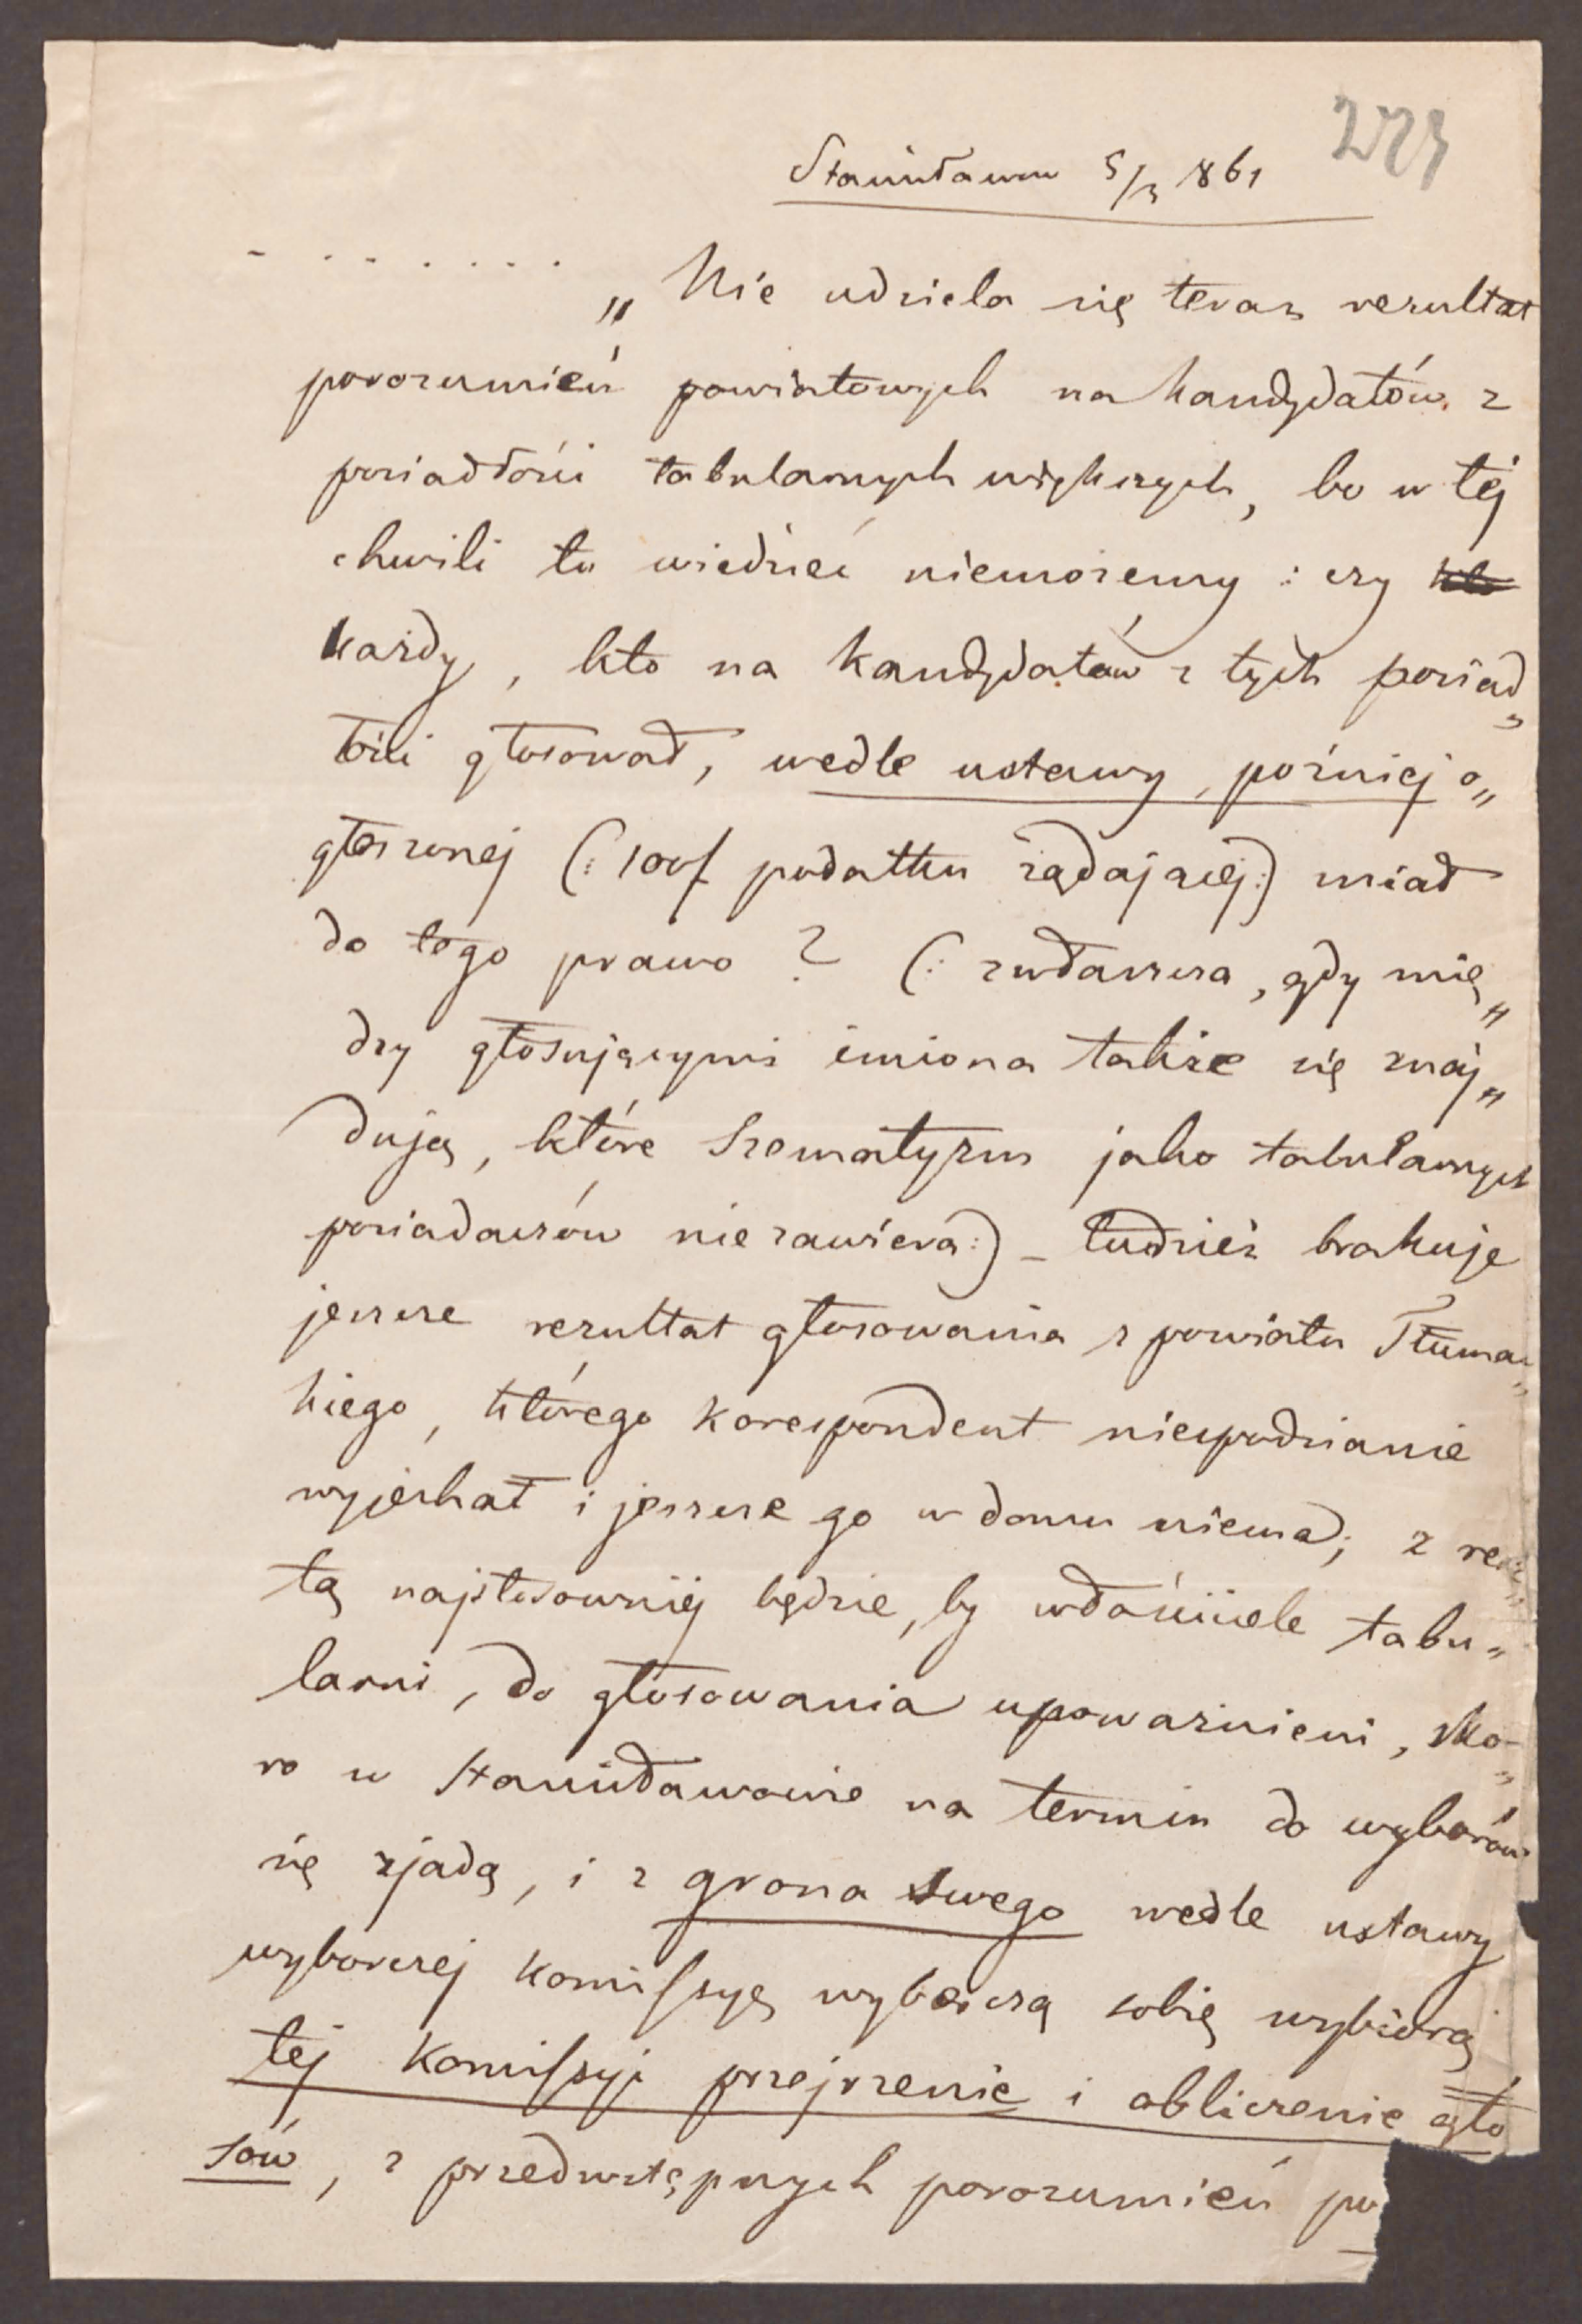 Stanisławow 5/3 861
- . . . . . .
„ Nie udziela się teraz rezultat
porozumień powiatowych na kandydatów z
posiadłości tabularnych większych, bo w téj
chwili tu wiedzieć niemożemy : czy
każdy, kto na kandydatów z tych posiad„
łości głosował, wedle ustawy, poźniej o„
głoszonej (: 100f podatku żądającéj :) miał
do tego prawo ? (: zwłaszcza, gdy mię„
dzy głosującymi imiona także się znaj„
dują, które Szematyzm jako tabularnych
posiadaczów nie zawiera :) - tudzież brakuje
jeszcze rezultat głosowania z powiatu Tłumac„
kiego, którego korespondent niespodzianie
wyjechał i jeszcze go w domu niema; z resz
tą najstosowniéj będzie, by właściciele tabu„
larni, do głosowania upoważnieni, sko„
ro w Stanisławowie na termin do wyborów
się zjadą, i z grona swego wedle ustawy
wyborczej komissyę wyborczą sobie wybiorą
tej komissyi przejrzenie i obliczenie gło
sów, z przedwstępnych porozumień po